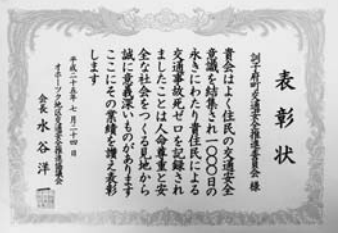 表彰状
訓子府町交通安全推進委員会 様
貴会はよく住民の交通安全
意識を結集され一〇〇〇日の
永きにわたり貴住民による
交通事故死ゼロを記録され
ましたことは人命尊重と安
全な社会をつくる見地から
誠に意義深いものがあります
ここにその業績を讃え表彰
します
平成二十五年 七月二十四日
オホーツク地区交通安全推進協議会
会長 水谷 洋